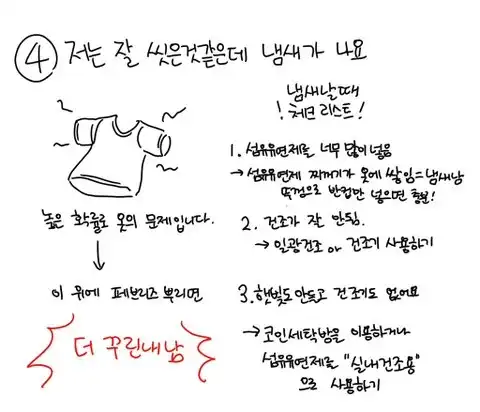 ④ 저는 잘 씻은것같은데 냄새가 나요
높은 확률로 옷의 문제입니다.
↓
이 위에 페브리즈 뿌리면
더 꾸린내남
냄새날때
! 체크리스트!
1. 섬유유연제를 너무 많이넣음
→ 섬유유연제 찌꺼기가 옷에 쌓임=냄새남
뚜껑으로 반컵만 넣으면 충분!
2. 건조가 잘 안됨.
→ 일광건조 or 건조기 사용하기
3. 햇빛도안듯고 건조기도 없어요
→ 코인세탁방을 이용하거나
섬유유연제를 "실내건조용"
으로 사용하기